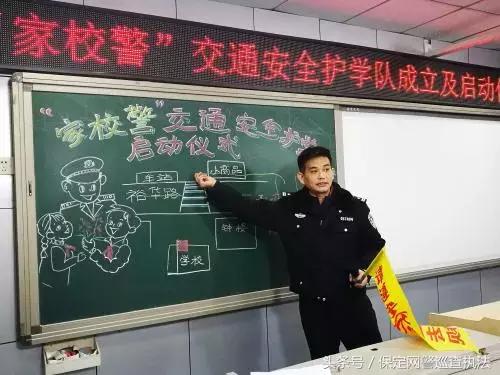 “家校警”交通安全护学队成立及启动仪
“家校警”交通安全护学
启动仪式
车站
小商品
裕华路
钟楼
学校
搜狐号@保定网警巡查执法